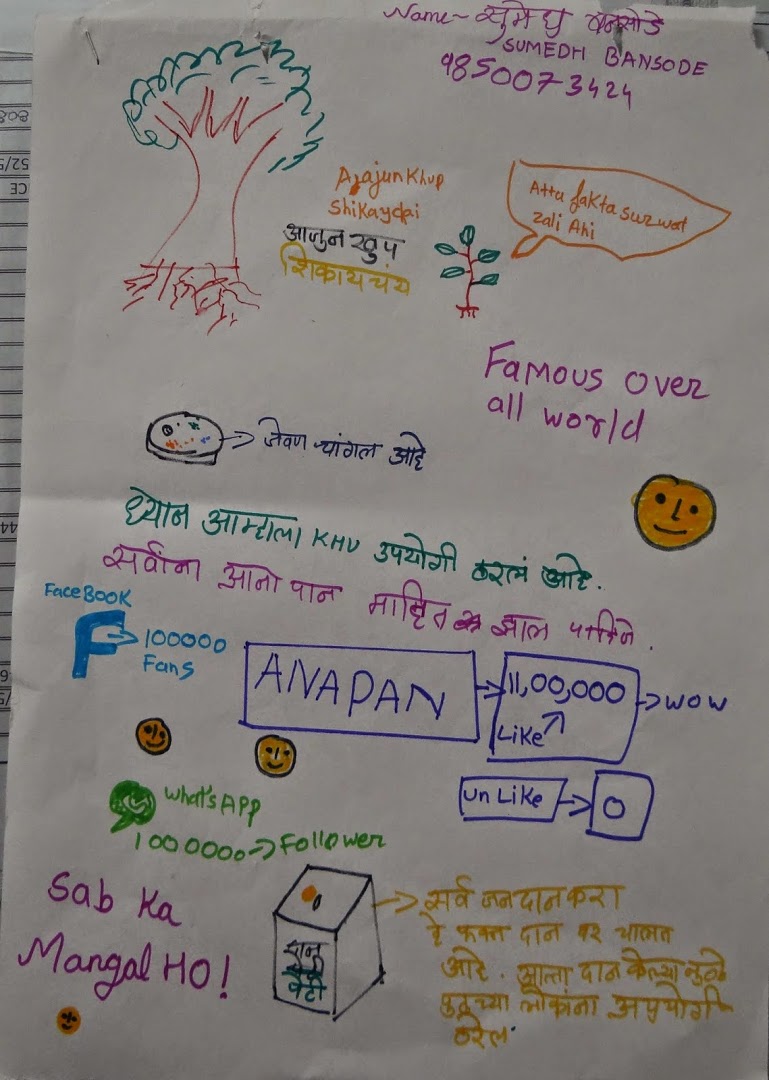 Name~ सुमेध बनसोडे
SUMEDH BANSODE
9850073424
Azajun Khup
Shikaychai
आजुन खुप
शिकायचंय
Atta fakta survat
zali Ahi
Famous over
all world
जेवण चांगल आहे
ध्यान आम्हाला KHU उपयोगी ठरलं आहे.
सर्वांना आनो पान माहित झाल पाहिजे.
FaceBook
F
100000
Fans
ANAPAN
11,00,000
Like
wow
unLike
0
What's APP
100.0000 Follower
Sab Ka
Mangal HO!
दान
पेटी
सर्व जन दान करा
हे फक्त दान वर चालत
आहे. आता दान केल्या मुळे
पुढच्या लोकांना अपयोगी
ठरेल.